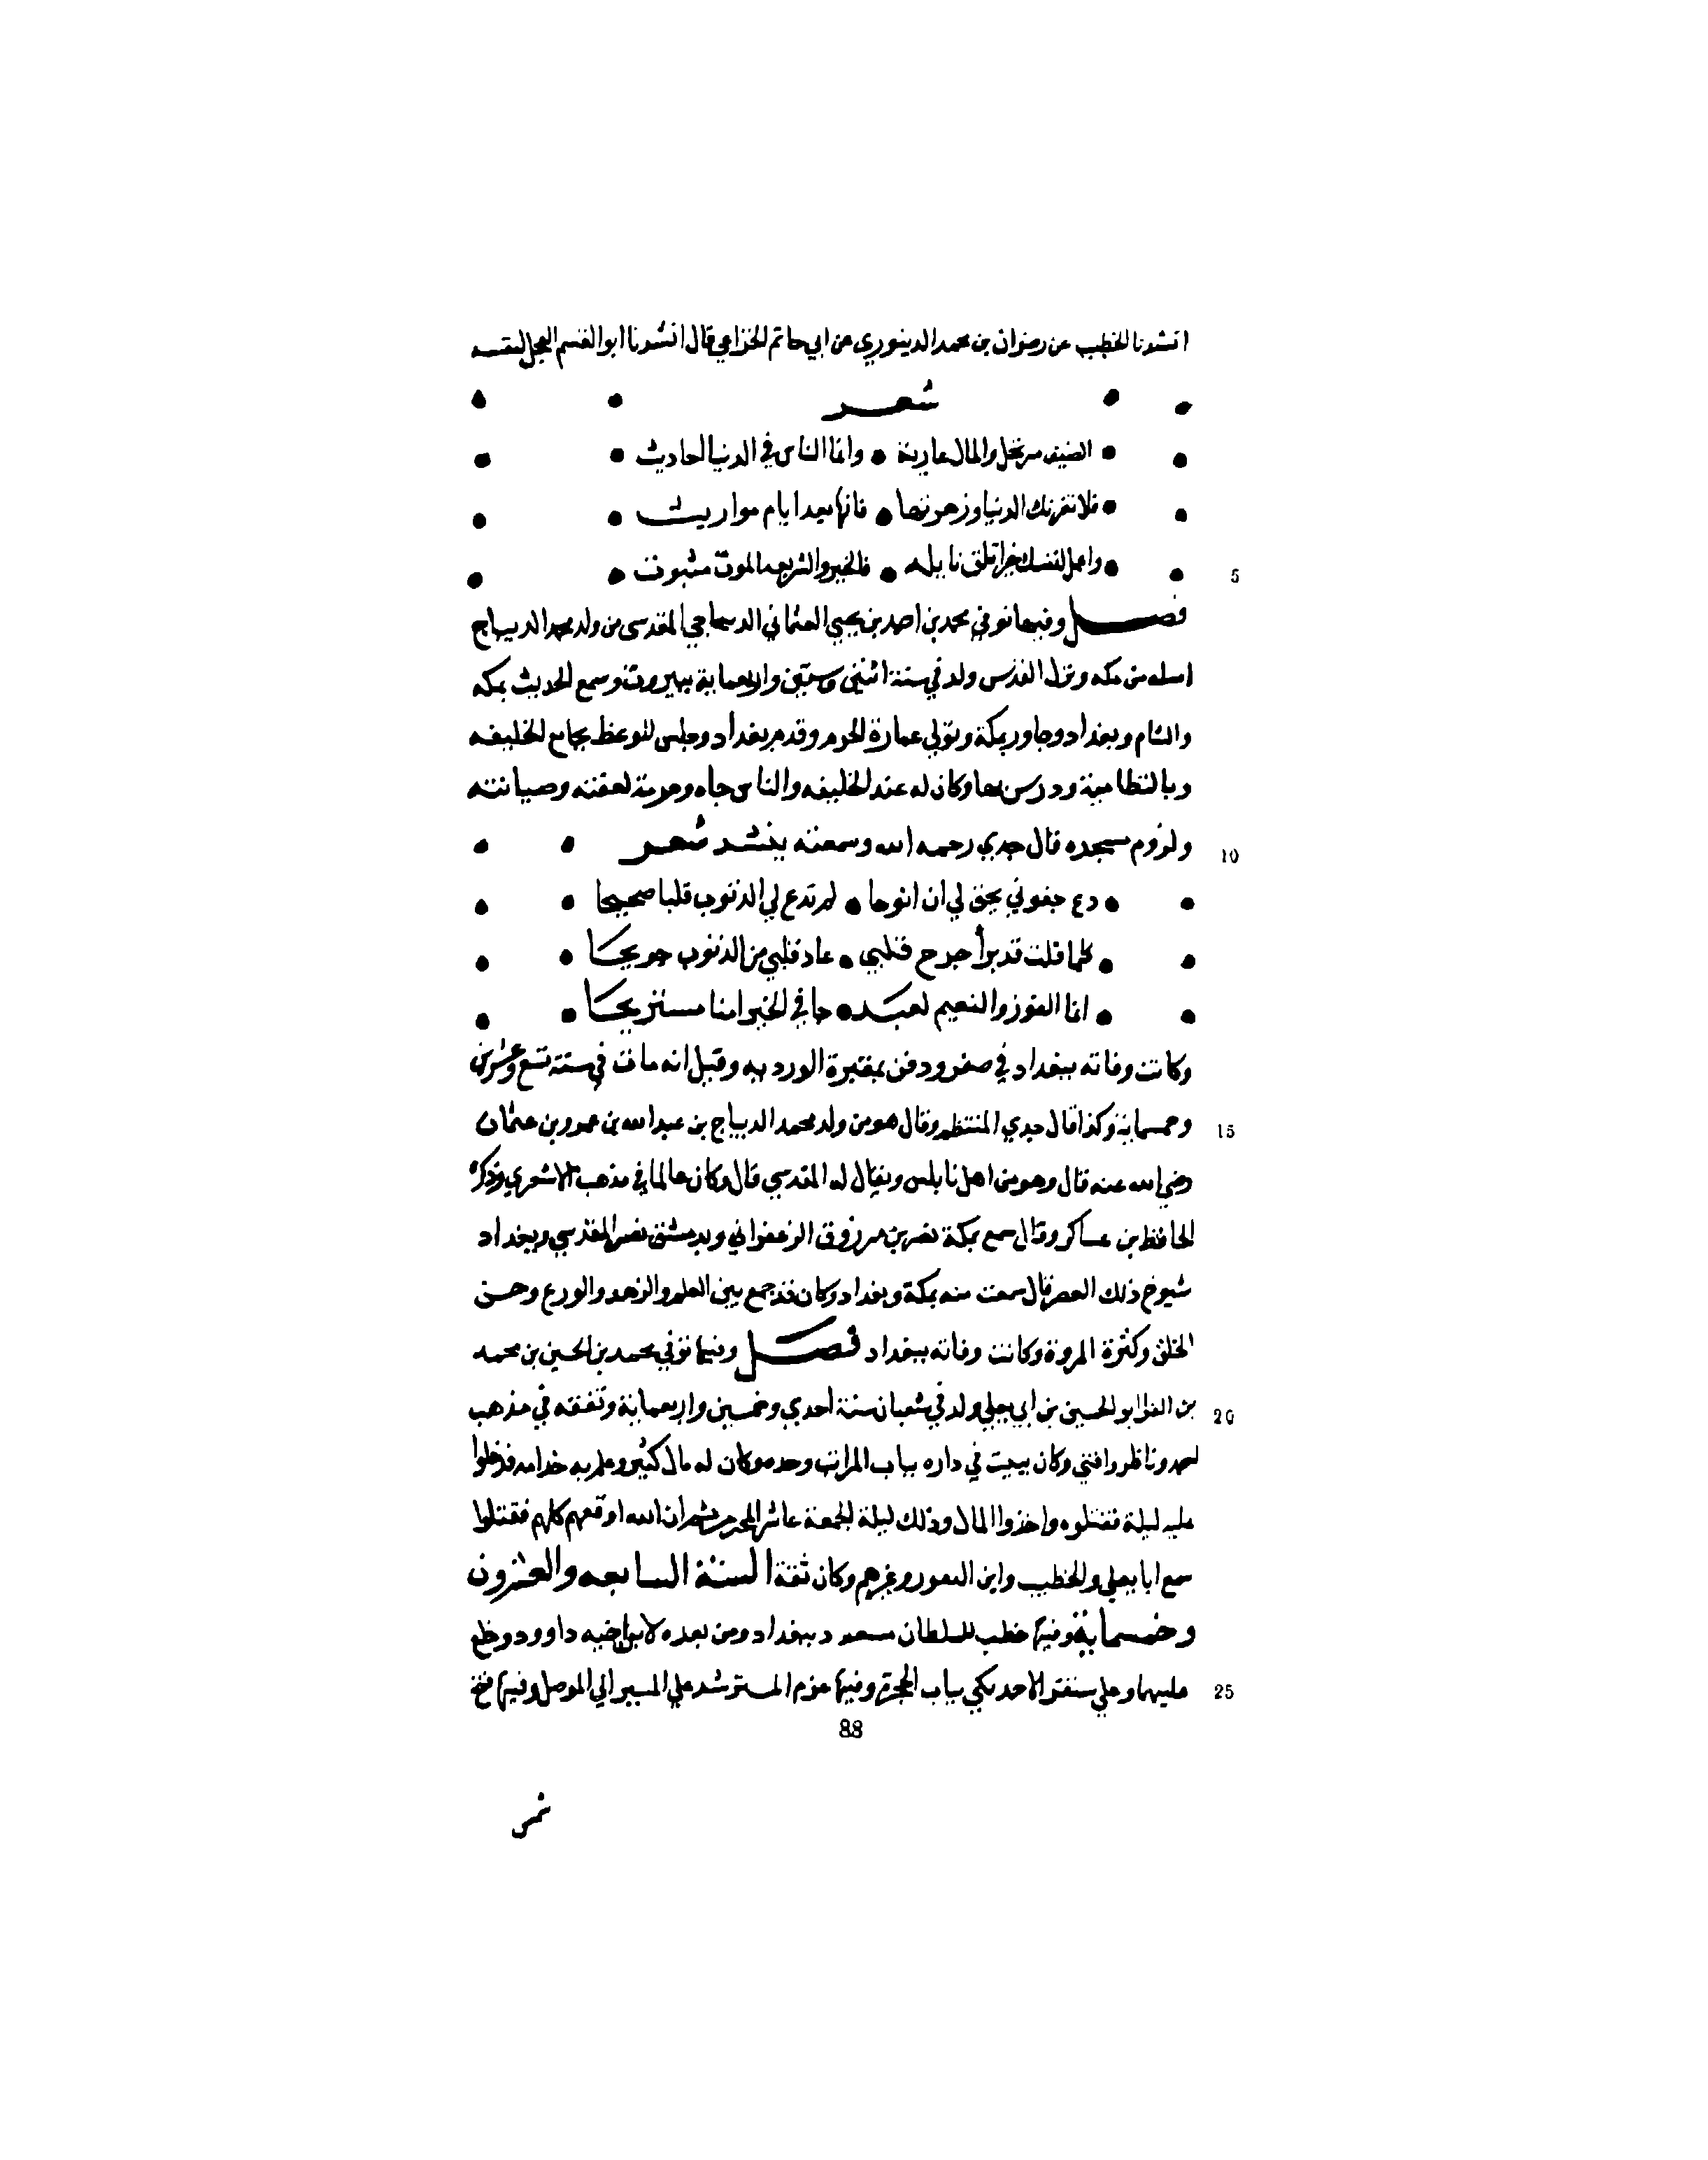 انشدنا الخطيب عن رضوان بن محمد الدينوري عن ابي حاتم الخزاعي قال انشدنا ابو القسم العجل لنفسه
شعر
الضيف مرتحل والمال عارية • وانما الناس في الدنيا احاديث
فلا تغرنك الدنيا وزهرتها • فانها بعد ايام مواريث
5 واعمل لنفسك خيرا تلق نايله • فالخير والشر بعد الموت مثبوت
فصل وفيها توفي محمد بن احمد بن يحيي العثماني الديباجي المقدسي من ولد محمد الديباج
اصله من مكه ونزل القدس ولد في سنة اثنتي وستين واربعماية ببيروت وسمع الحديث بمكه
والشام وبغداد وجاور بمكة وتولي عمارة الحرم وقدم بغداد وجلس للوعظ بجامع الخليفه
وبالنظامية ودرس بها وكان له عند الخليفه والناس جاه وحرمة لعفته وصيانته
10 ولزوم مسجده قال جدي رحمه الله وسمعته ينشد شعر
دع جفوني يحق لي ان انوحا • لم تدع لي الذنوب قلبا صحيحا
كلما قلت قد برأ جرح قلبي • عاد قلبي من الذنوب جريحا
انما الفوز والنعيم لعبد • جا في الحشر امنا مستريحا
وكانت وفاته ببغداد في صفر ودفن بمقبرة الورديه وقيل انه مات في سنة تسع وعشرين
15 وخمسماية وكذا قال جدي المنتظم وقال هو من ولد محمد الديباج بن عبد الله بن عمرو بن عثمان
رضي الله عنه قال وهو من اهل نابلس ويقال له المقدسي قال وكان عالما في مذهب الاشعري وذكره
الحافظ بن عساكر وقال سمع بمكة نصر بن مرزوق الزعفراني وبدمشق نصر المقدسي وبغداد
شيوخ ذلك العصر قال سمعت منه بمكة وبغداد وكان قد جمع بين العلم والزهد والورع وحسن
الخلق وكثرة المروة وكانت وفاته ببغداد فصل وفيها توفي محمد بن الحسين بن محمد
20 بن الفرا ابو الحسين بن ابي يعلي ولد في شعبان سنة احدي وخمسين واربعماية وتفقه في مذهب
احمد وناظر وافتي وكان يبيت في داره بباب المراتب وحده وكان له مال كثير وعلم به خدامه فدخلوا
عليه ليلة فقتلوه واخذوا المال وذلك ليلة الجمعة عاشر المحرم ثم ان الله اوقعهم كلهم فقتلوا
سمع ابا يعلي والخطيب وابن النقور وغيرهم وكان ثقة السنة السابعه والعشرون
وخمسماية وفيها خطب للسلطان مسعود ببغداد ومن بعده لابن اخيه داوود وخلع
25 عليهما وعلي سنقر الاحمديلي بباب الحجرة وفيها عزم المسترشد علي المسير الي الموصل وفيها فتح
88
شمس